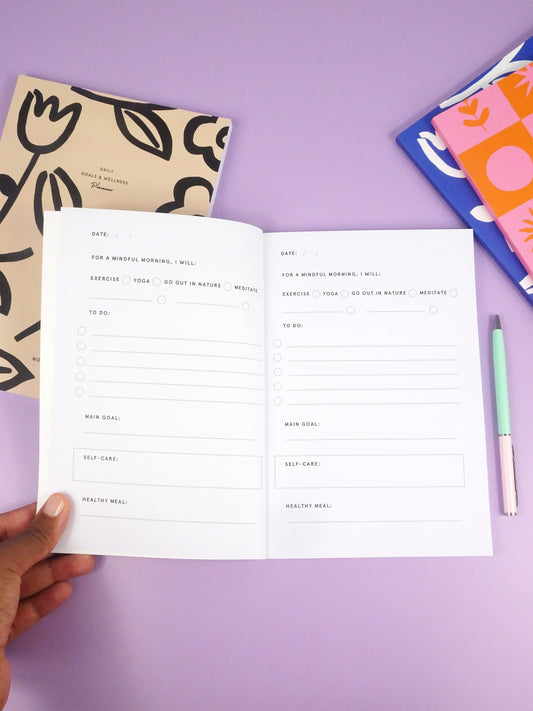 DAILY
GOALS & WELLNESS
Planner
DATE: / /
FOR A MINDFUL MORNING, I WILL:
EXERCISE YOGA GO OUT IN NATURE MEDITATE
TO DO:
MAIN GOAL:
SELF-CARE:
HEALTHY MEAL:
DATE: / /
FOR A MINDFUL MORNING, I WILL:
EXERCISE YOGA GO OUT IN NATURE MEDITATE
TO DO:
MAIN GOAL:
SELF-CARE:
HEALTHY MEAL: